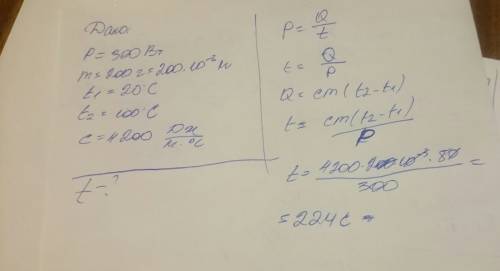 Дано:
P = 300 Вт
m = 200 г = 200·10⁻³ кг
t₁ = 20°C
t₂ = 100°C
c = 4200 Дж/кг·°C
t - ?
P = Q/t
t = Q/P
Q = cm(t₂-t₁)
t = cm(t₂-t₁)/P
t = 4200·200·10⁻³·80/300 =
= 224 c